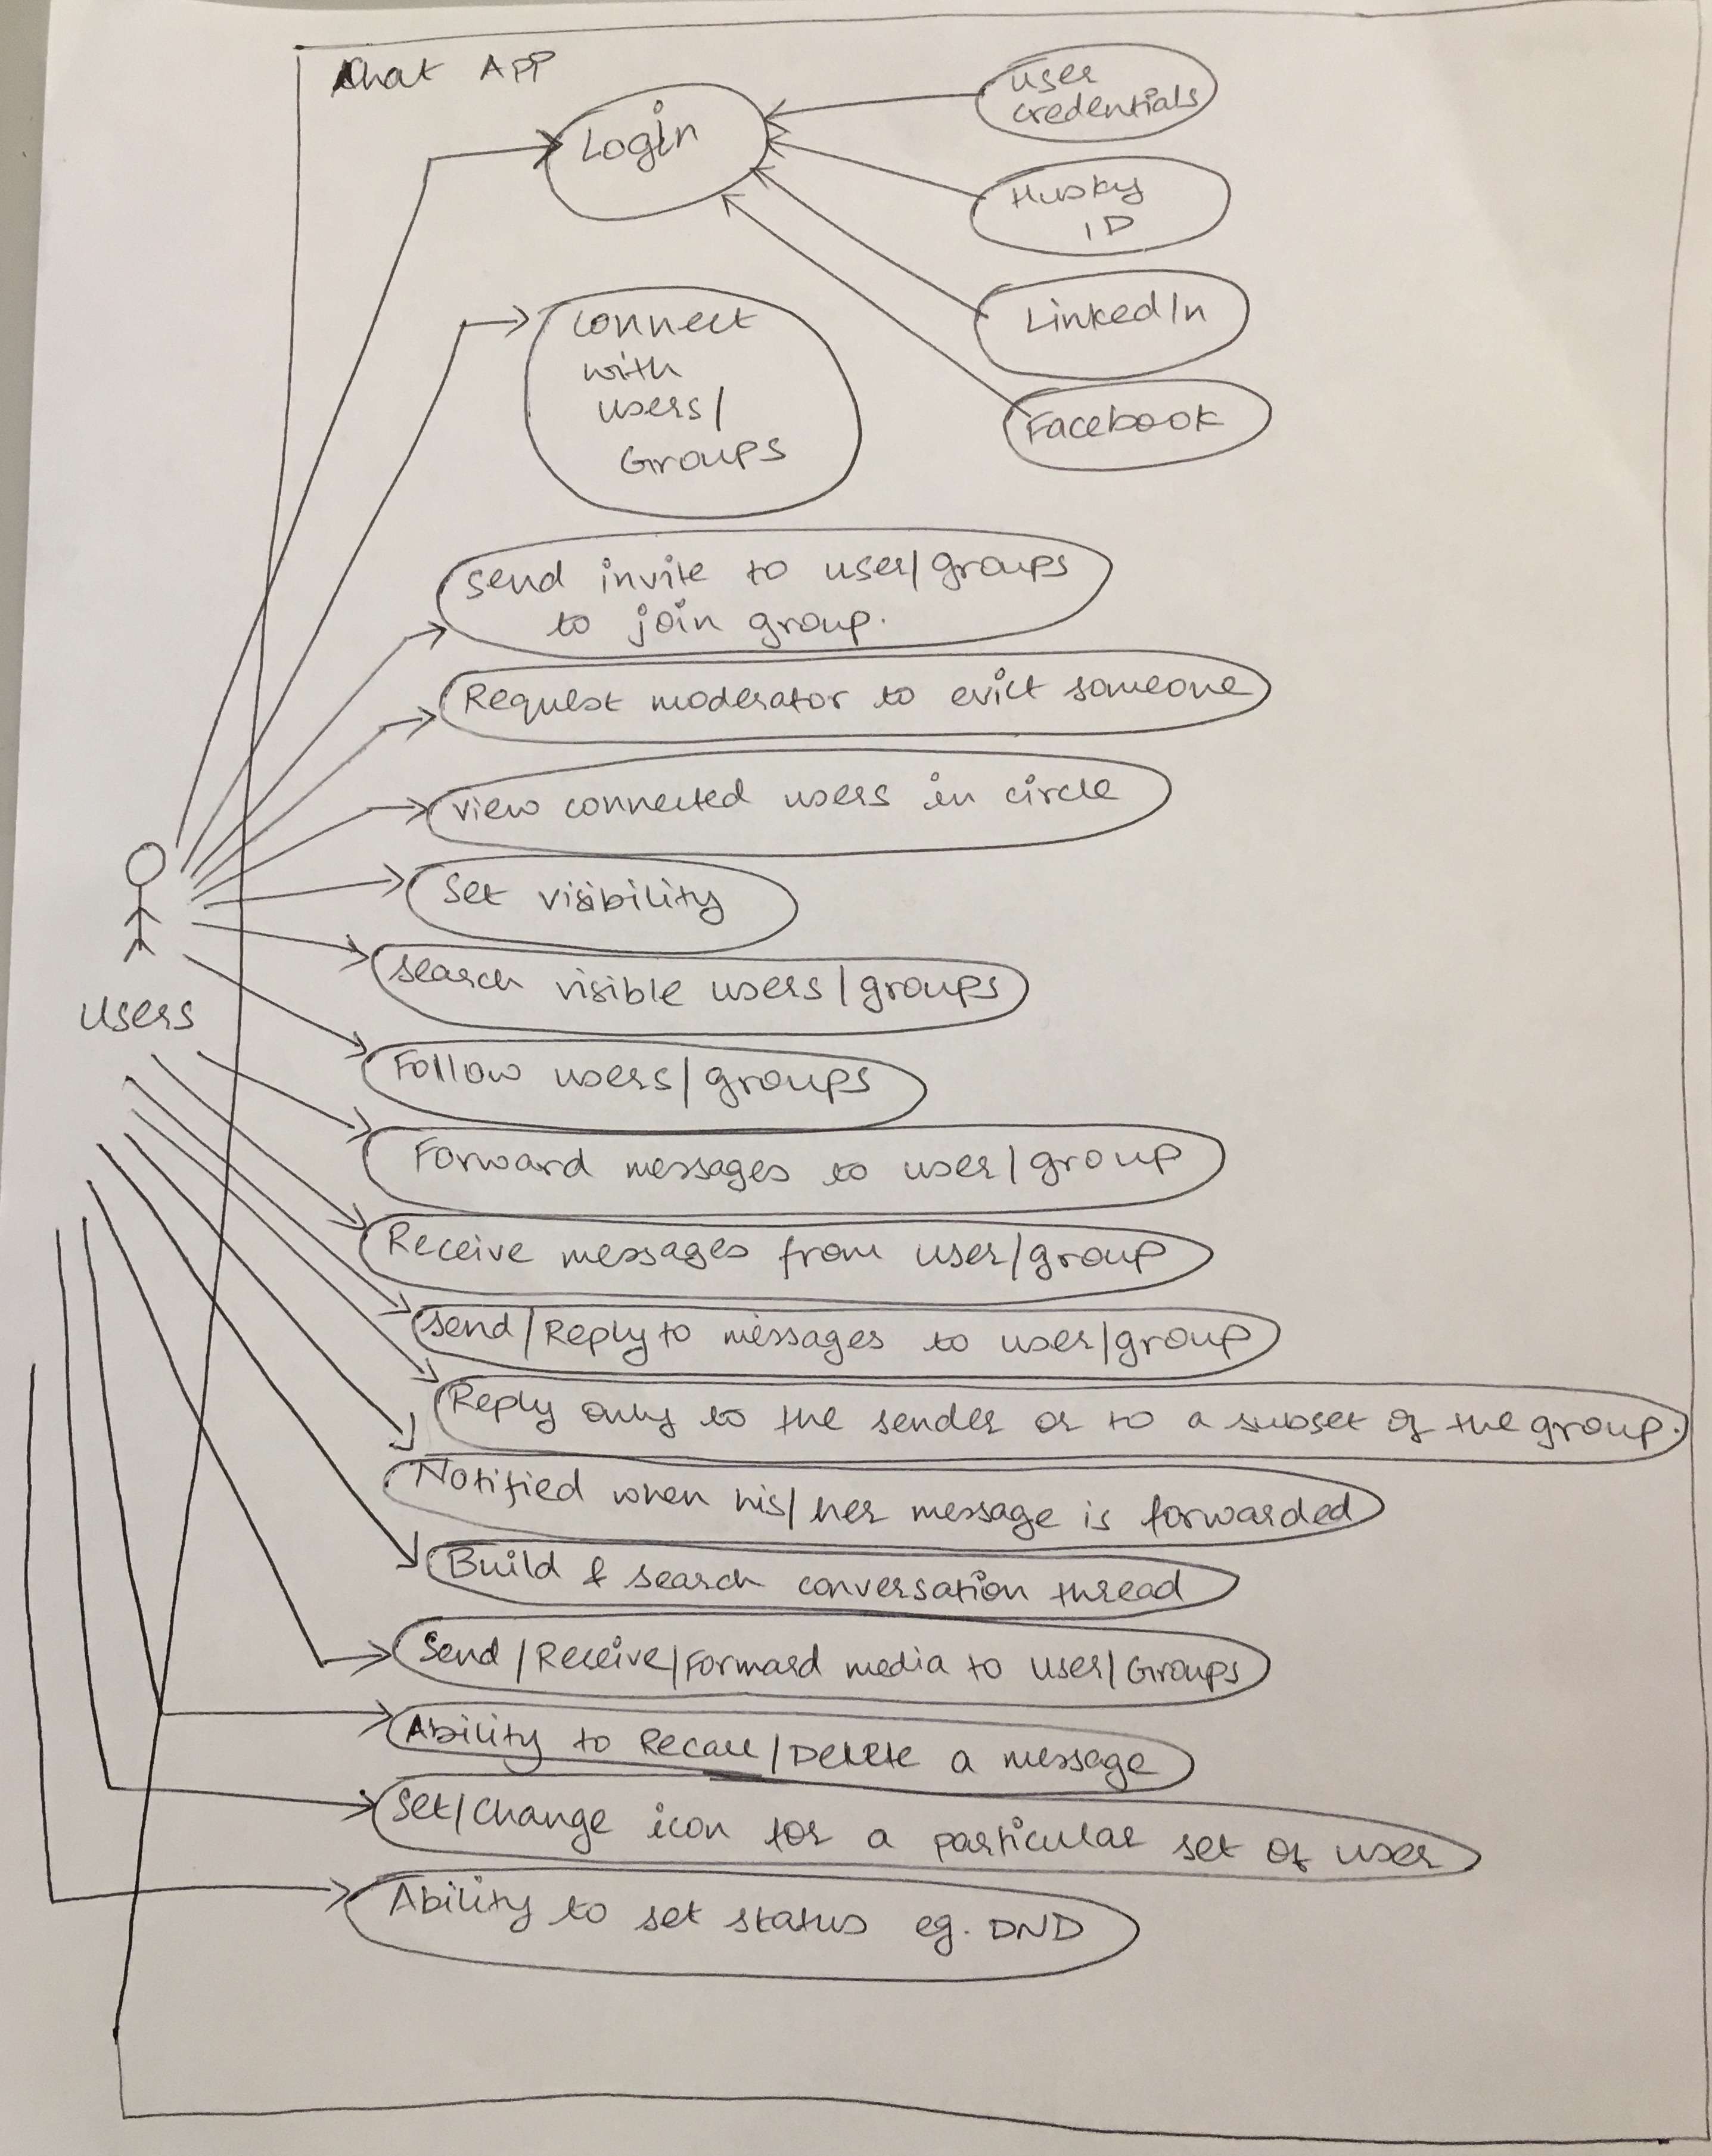 Chat APP
Login
user
credentials
Husky
ID
LinkedIn
Facebook
connect
with
users/
Groups
send invite to user/groups
to join group.
Request moderator to evict someone
view connected users in circle
Set visibility
search visible users/groups
Users
Follow users/groups
Forward messages to user/group
Receive messages from user/group
send/Reply to messages to user/group
Reply only to the sender or to a subset of the group.
Notified when his/her message is forwarded
Build & search conversation thread
Send/Receive/Forward media to user/Groups
Ability to Recall/Delete a message
Set/Change icon for a particular set of user
Ability to set status eg. DND